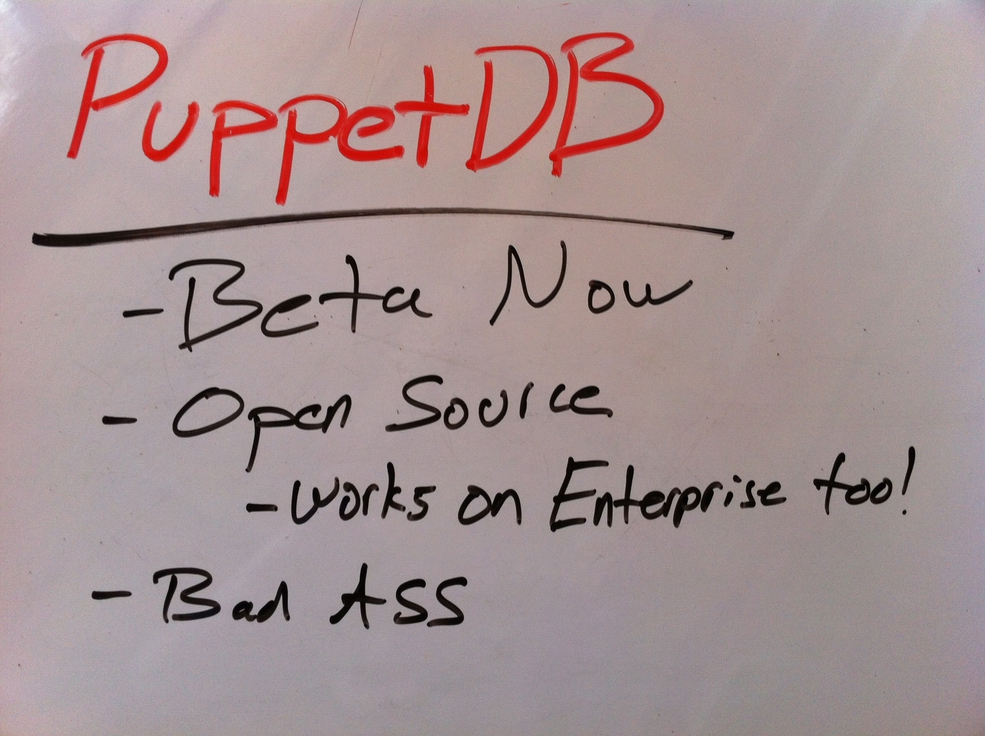 PuppetDB
- Beta Now
- Open Source
- Works on Enterprise too!
- Bad Ass